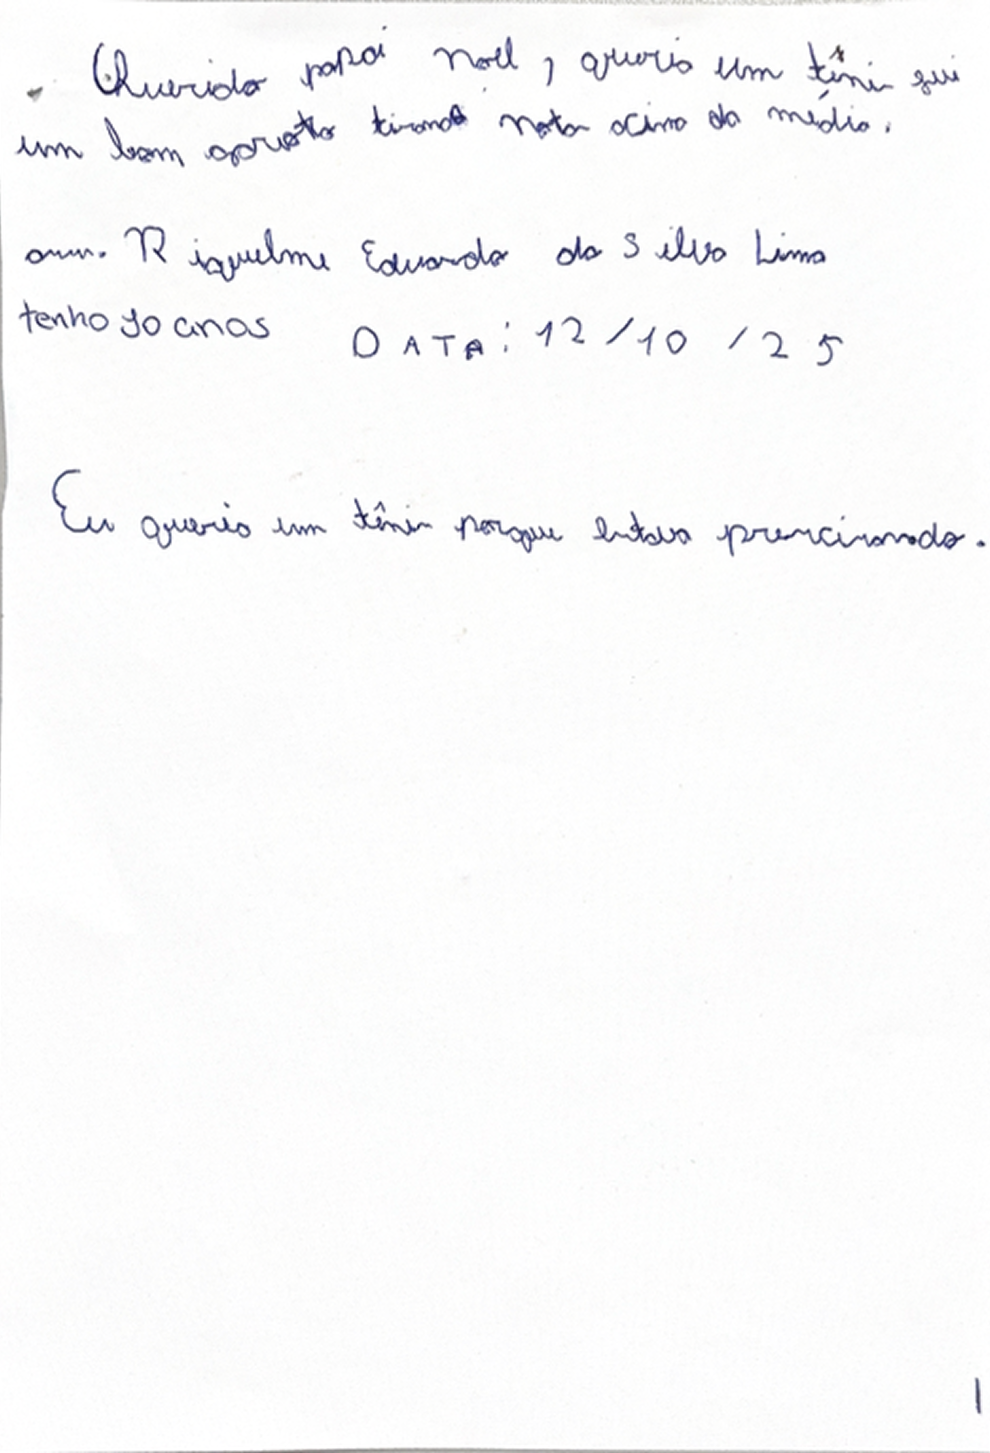 Querido papai noel, queria um tênis fui
um bom garoto tirando nota acima da média.
ass. Riquelme Eduardo da Silva Lima
tenho 10 anos DATA: 12/10/25
Eu queria um tênis porque estava presicionado.